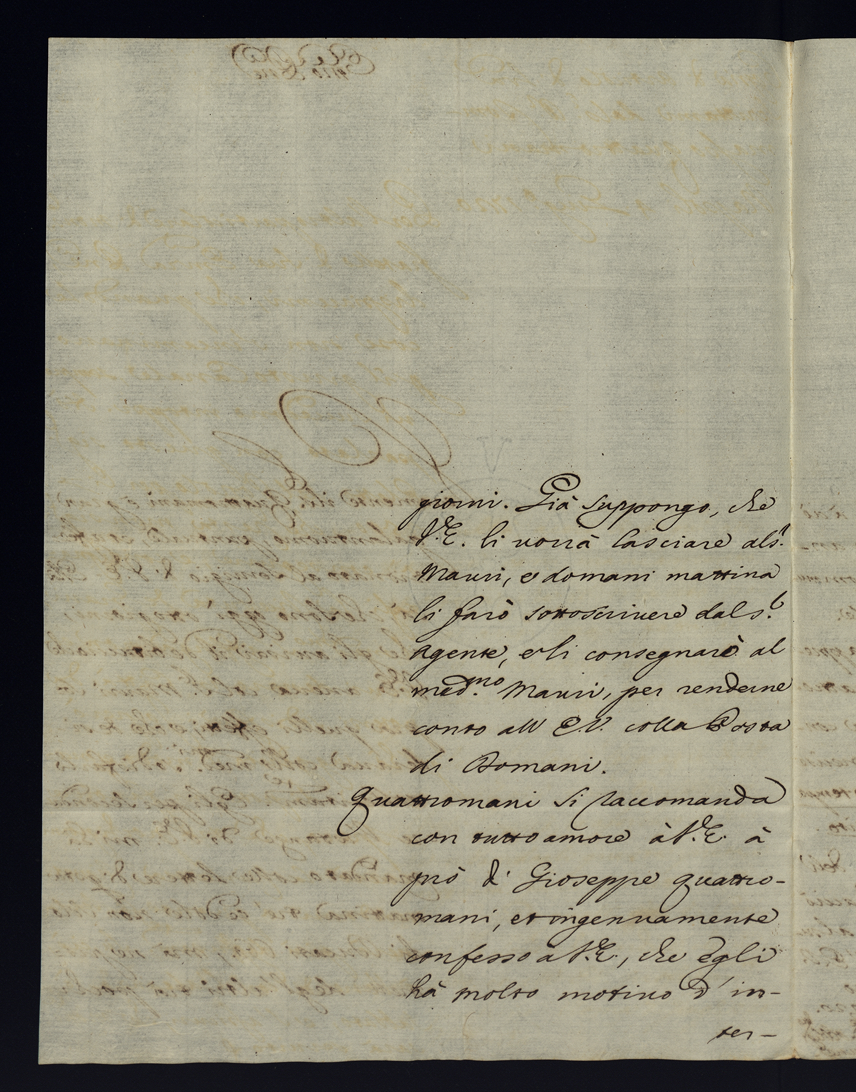 giorni. Già suppongo, che
V.E. li vorrà lasciare al s.r
Mauri, e domani mattina
li farò sottoscrivere dal s.r
Agente, e li consegnarò al
med.mo Mauri, per renderne
conto all' E.V. colla Posta
di Domani.
Quattromani si raccomanda
con tutto amore à V.E. à
prò di Gioseppe Quattro-
mani, et ingenuamente
confesso a V.E., che Egli
hà molto motivo d' in-
ter-